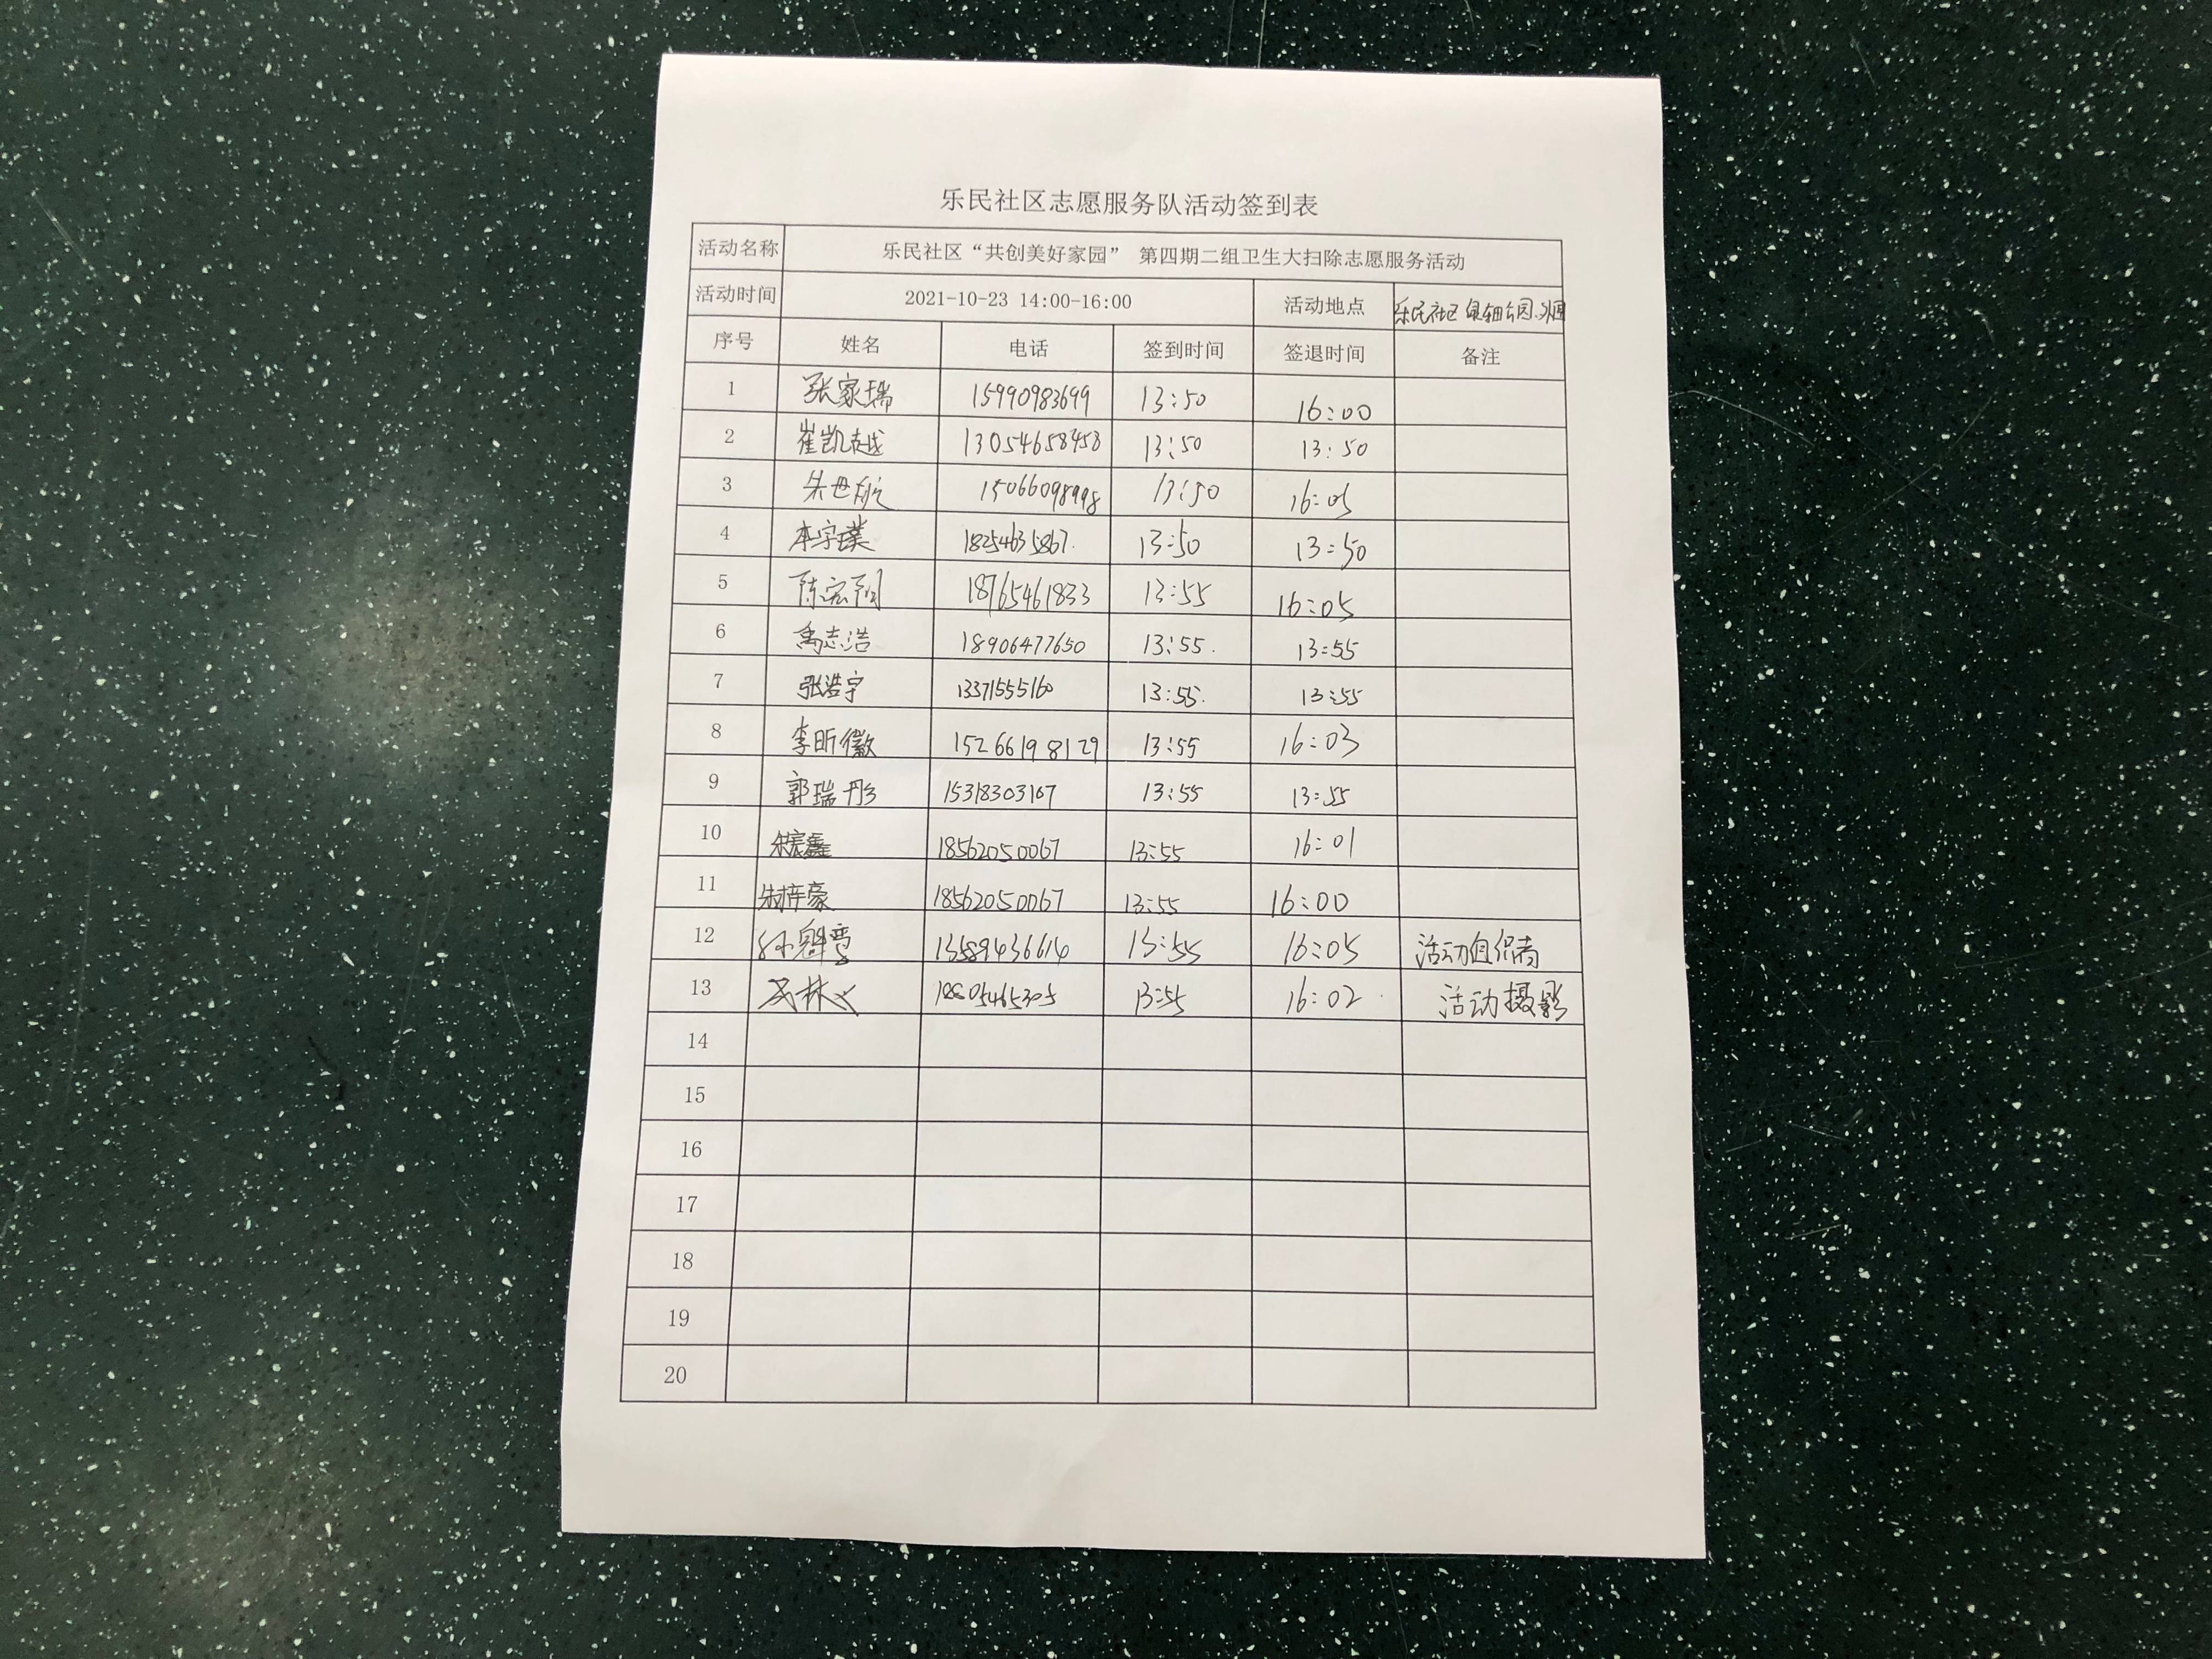 乐民社区志愿服务队活动签到表
活动名称 乐民社区“共创美好家园” 第四期二组卫生大扫除志愿服务活动
活动时间 2021-10-23 14:00-16:00 活动地点 乐民社区
序号 姓名 电话 签到时间 签退时间 备注
1 张家瑞 15990983699 13:50 16:00
2 崔凯越 13054658458 13:50 13:50
3 朱世航 15066098998 13:50 16:05
4 李宇璞 18254635867. 13:50 13:50
5 陈宏 18765461833 13:55 16:05
6 禹志浩 18906477650 13:55. 13:55
7 张浩宇 13371555160 13:55. 13:55
8 李昕徽 15266198129 13:55 16:03
9 郭瑞彤 15318303167 13:55 13:55
10 朱宸鑫 18562050067 13:55 16:01
11 朱梓豪 18562050067 13:55 16:00
12 13589436614 13:55 16:05 活动组织者
13 18805465305 13:55 16:02 活动摄影
14
15
16
17
18
19
20